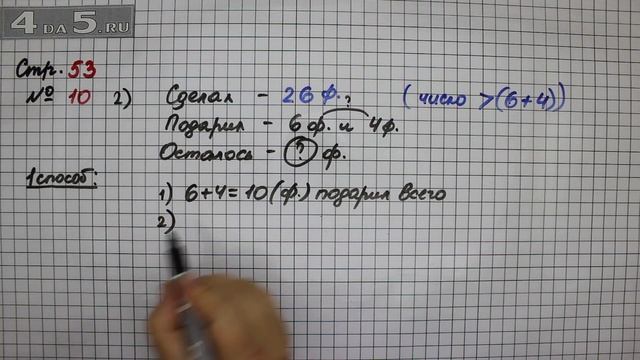 4DA5.RU
Стр. 53
№ 10 2) Сделал - 26 ф. (число >(6+4))
?
Подарил - 6 ф. и 4 ф.
Осталось - ? ф.
1 способ:
1) 6+4=10(ф.) подарил всего
2)